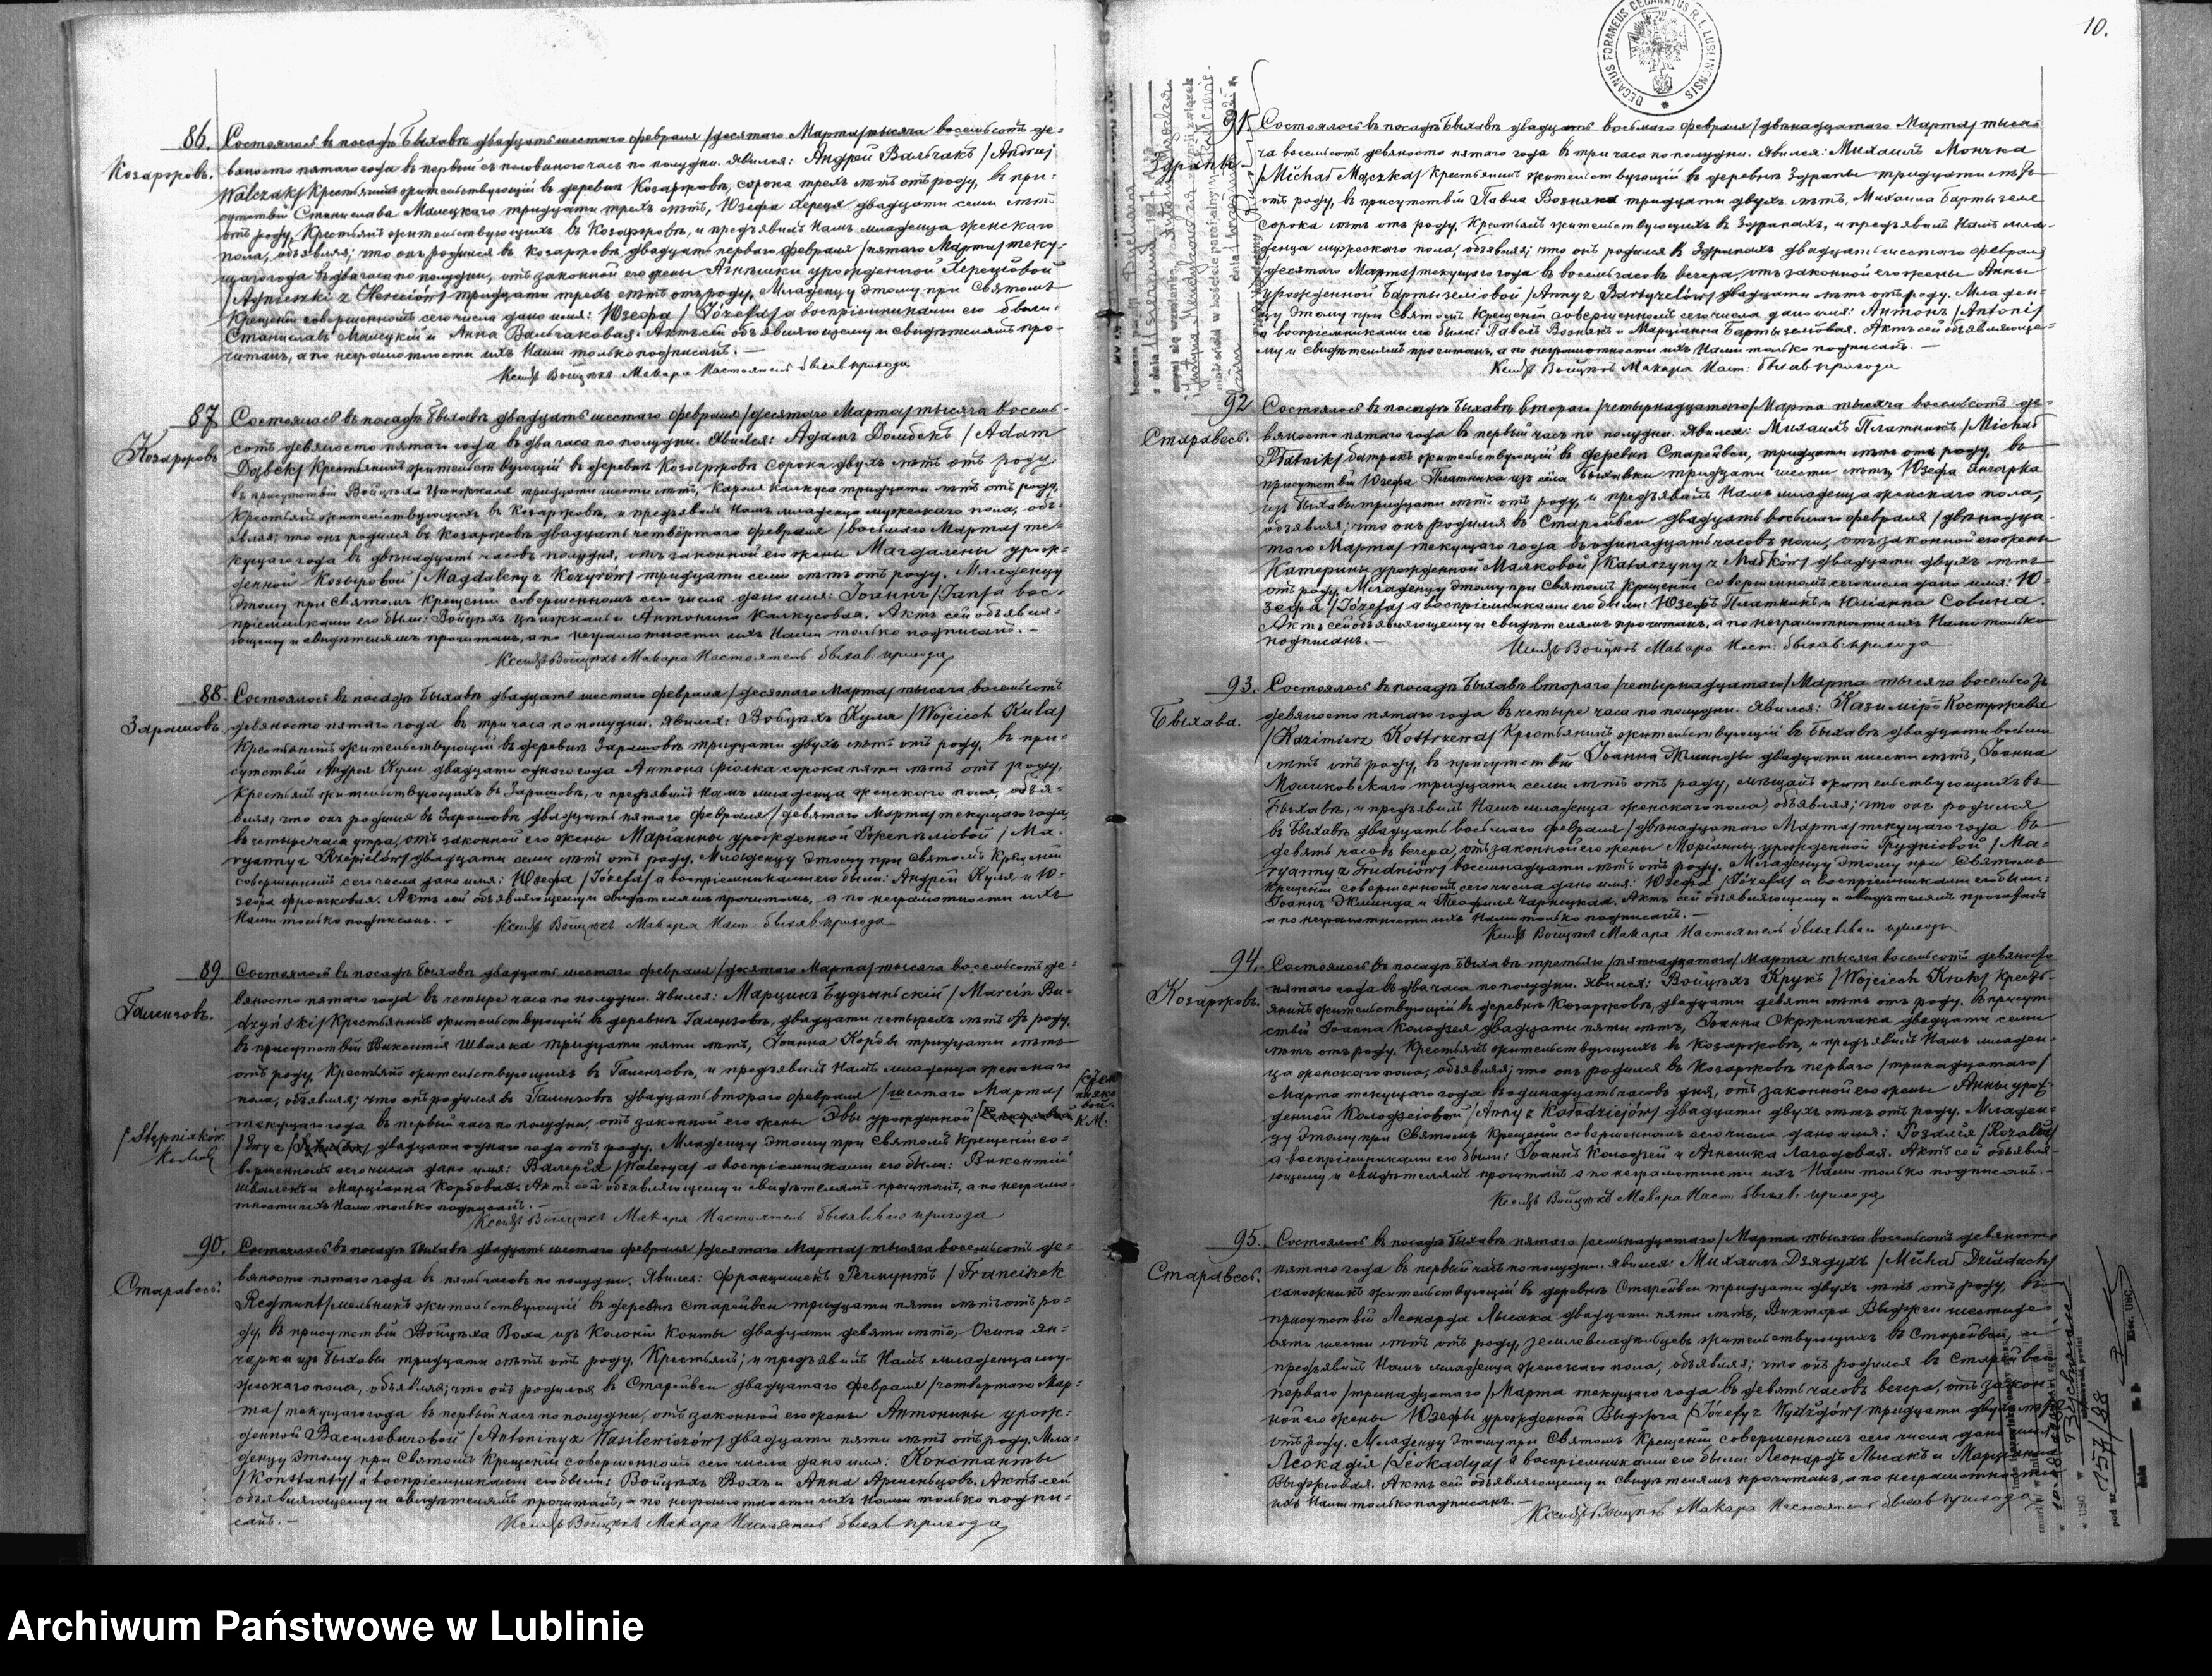 86. Состоялось въ посадѣ Быхавѣ двадцать шестаго февраля /десятаго Марта/ тысяча восемьсотъ де-
Козаржовъ. вяносто пятаго года въ первый съ половиною часъ по полудни. Явился: Андрей Вальчакъ /Andrzej
Walczak/ Крестьянинъ жительствующій въ деревнѣ Козаржовѣ, сорока трехъ лѣтъ отъ роду, въ при-
сутствіи Станислава Малецкаго тридцати трехъ лѣтъ, Юзефа Хереця двадцати семи лѣтъ
отъ роду, Крестьянъ жительствующихъ въ Козаржовѣ, и предъявилъ Намъ младенца женскаго
пола, объявляя; что онъ родился въ Козаржовѣ двадцать перваго февраля /пятаго Марта/ теку-
щаго года въ два часа по полудни, отъ законной его жены Агнѣшки урожденной Херецовой
/Agnieszki z Hereciów/ тридцати трехъ лѣтъ отъ роду. Младенцу этому при Святомъ
Крещеніи совершенномъ сего числа дано имя: Юзефа /Józefa/ а воспріемниками его были:
Станиславъ Малецкій и Анна Вальчаковая. Актъ сей объявляющему и свидѣтелямъ про-
читанъ, а по неграмотности ихъ Нами только подписанъ. —
Ксендзъ Войцѣхъ Макара Настоятель быхав. прихода
87 Состоялось въ посадѣ Быхавѣ двадцать шестаго февраля /десятаго Марта/ тысяча восемь-
Козаржовъ сотъ девяносто пятаго года въ два часа по полудни. Явился: Адамъ Домбекъ /Adam
Dąbek/ Крестьянинъ жительствующій въ деревнѣ Козаржовѣ сорока двухъ лѣтъ отъ роду
въ присутствіи Войцѣха тридцати шести лѣтъ, Кароля Калкуса тридцати лѣтъ отъ роду,
Крестьянъ жительствующихъ въ Козаржовѣ, и предъявилъ Намъ младенца мужескаго пола, объ-
являя; что онъ родился въ Козаржовѣ двадцать четвёртаго февраля /восьмаго Марта/ те-
кущаго года въ двѣнадцать часовъ полудня, отъ законной его жены Магдалены урож-
денной Козыровой /Magdaleny z Kozyrów/ тридцати семи лѣтъ отъ роду. Младенцу
этому при Святомъ Крещеніи совершенномъ сего числа дано имя: Іоаннъ /Jan/ а вос-
пріемниками его были: Войцѣхъ и Антонина Калкусовая. Актъ сей объявля-
ющему и свидѣтелямъ прочитанъ, а по неграмотности ихъ Нами только подписанъ. —
Ксендзъ Войцѣхъ Макара Настоятель быхав. прихода
88. Состоялось въ посадѣ Быхавѣ двадцать шестаго февраля /десятаго Марта/ тысяча восемьсотъ
Зарашовъ. девяносто пятаго года въ три часа по полудни. Явился: Войцѣхъ Куля /Wojciech Kula/
Крестьянинъ жительствующій въ деревнѣ Зарашовѣ тридцати двухъ лѣтъ отъ роду, въ при-
сутствіи Андрея Кули двадцати одного года Антона Фіолка сорока пяти лѣтъ отъ роду,
Крестьянъ жительствующихъ въ Зарашовѣ, и предъявилъ Намъ младенца женскаго пола, объя-
вляя; что онъ родился въ Зарашовѣ двадцать пятаго февраля /девятаго Марта/ текущаго года,
въ четыре часа утра, отъ законной его жены Маріанны урожденной Ржепѣліовой /Ma-
ryanny z Rzepielów/ двадцати семи лѣтъ отъ роду. Младенцу этому при Святомъ Крещеніи
совершенномъ сего числа дано имя: Юзефа /Józefa/ а воспріемниками его были: Андрей Куля и Ю-
зефа Фрончковая. Актъ сей объявляющему и свидѣтелямъ прочитанъ, а по неграмотности ихъ
Нами только подписанъ. —
Ксендзъ Войцѣхъ Макара Наст. быхав. прихода
89 Состоялось въ посадѣ Быхавѣ двадцать шестаго февраля /десятаго Марта/ тысяча восемьсотъ де-
Галензовъ. вяносто пятаго года въ четыре часа по полудни. Явился: Марцинъ Будзыньскій /Marcin Bu-
dzyński/ Крестьянинъ жительствующій въ деревнѣ Галензовѣ, двадцати четырехъ лѣтъ отъ роду,
въ присутствіи Викентія Швалка тридцати пяти лѣтъ, Іоанна Корбы тридцати лѣтъ
отъ роду, Крестьянъ жительствующихъ въ Галензовѣ, и предъявилъ Намъ младенца женскаго
пола, объявляя; что онъ родился въ Галензовѣ двадцать втораго февраля /шестаго Марта/
текущаго года въ первый часъ по полудни, отъ законной его жены Эвы урожденной
/Стем-
пняко-
вой.
К.М.
/Stępniaków
/Ewy z двадцати одного года отъ роду. Младенцу этому при Святомъ Крещеніи со-
вершенномъ сего числа дано имя: Валерія /Walerya/ а воспріемниками его были: Викентій
Швалекъ и Маріанна Корбовая. Актъ сей объявляющему и свидѣтелямъ прочитанъ, а по неграмо-
тности ихъ Нами только подписанъ. —
Ксендзъ Войцѣхъ Макара Настоятель быхавскаго прихода
90. Состоялось въ посадѣ Быхавѣ двадцать шестаго февраля /десятаго Марта/ тысяча восемьсотъ де-
Старавесь. вяносто пятаго года въ пять часовъ по полудни. Явился: Францишекъ Регмунтъ /Franciszek
Regmunt/ мельникъ жительствующій въ деревнѣ Старейвси тридцати пяти лѣтъ отъ ро-
ду, въ присутствіи Войцѣха Воха изъ Колоніи Конты двадцати девяти лѣтъ, Осипа Ян-
чарка изъ Быхавы тридцати лѣтъ отъ роду, Крестьянъ; и предъявилъ Намъ младенца му-
жескаго пола, объявляя; что онъ родился въ Старейвси двадцатаго февраля /четвертаго Мар-
та/ текущаго года въ первый часъ по полудни, отъ законной его жены Антонины урож-
денной Василевичовой /Antoniny z Wasilewiczów/ двадцати пяти лѣтъ отъ роду. Мла-
денцу этому при Святомъ Крещеніи совершенномъ сего числа дано имя: Константы
/Konstanty/ а воспріемниками его были: Войцѣхъ Вохъ и Анна. Актъ сей
объявляющему и свидѣтелямъ прочитанъ, а по неграмотности ихъ Нами только подпи-
санъ. —
Ксендзъ Войцѣхъ Макара Настоятель быхав. прихода
10.
DECANUS FORANEUS DECANATUS R. L. LUBLINENSIS
91. Состоялось въ посадѣ Быхавѣ двадцать восьмаго февраля /двѣнадцатаго Марта/ тыся-
Здрапы. ча восемьсотъ девяносто пятаго года въ три часа по полудни. Явился: Михаилъ Мончка
/Michał Mączka/ Крестьянинъ жительствующій въ деревнѣ Здрапы тридцати лѣтъ
отъ роду, въ присутствіи Павла Возняка тридцати двухъ лѣтъ, Михаила Бартызеля
сорока лѣтъ отъ роду, Крестьянъ жительствующихъ въ Здрапахъ, и предъявилъ Намъ мла-
денца мужескаго пола, объявляя; что онъ родился въ Здрапахъ двадцать шестаго февраля
/десятаго Марта/ текущаго года въ восемь часовъ вечера, отъ законной его жены Анны
урожденной Бартызеліовой /Anny z Bartyzelów/ двадцати лѣтъ отъ роду. Младен-
цу этому при Святомъ Крещеніи совершенномъ сего числа дано имя: Антонъ /Antoni/
а воспріемниками его были: Павелъ Вознякъ и Марціанна Бартызеловая. Актъ сей объявляюще-
му и свидѣтелямъ прочитанъ, а по неграмотности ихъ Нами только подписанъ. —
Ксендзъ Войцѣхъ Макара Наст. быхав. прихода
92 Состоялось въ посадѣ Быхавѣ втораго /четырнадцатаго/ Марта тысяча восемьсотъ де-
Старавесь. вяносто пятаго года въ первый часъ по полудни. Явился: Михаилъ Платникъ /Michał
Płatnik/ батракъ жительствующій въ деревнѣ Старейвси, тридцати лѣтъ отъ роду, въ
присутствіи Юзефа Платника изъ села Быхавки тридцати шести лѣтъ, Юзефа Янчарка
изъ Быхавы тридцати лѣтъ отъ роду, и предъявилъ Намъ младенца женскаго пола,
объявляя; что онъ родился въ Старейвси двадцать восьмаго февраля /двѣнадца-
таго Марта/ текущаго года въ одинадцать часовъ ночи, отъ законной его жены
Катерины урожденной Малковой /Katarzyny z Małków/ двадцати двухъ лѣтъ
отъ роду. Младенцу этому при Святомъ Крещеніи совершенномъ сего числа дано имя: Ю-
зефа /Józefa/ а воспріемниками его были: Юзефъ Платникъ и Юліанна Совина.
Актъ сей объявляющему и свидѣтелямъ прочитанъ, а по неграмотности ихъ Нами только
подписанъ. —
Ксендзъ Войцѣхъ Макара Наст. быхав. прихода
93. Состоялось въ посадѣ Быхавѣ втораго /четырнадцатаго/ Марта тысяча восемьсотъ
Быхава. девяносто пятаго года въ четыре часа по полудни. Явился: Казимиръ Костржева
/Kazimierz Kostrzewa/ Крестьянинъ жительствующій въ Быхавѣ двадцати восьми
лѣтъ отъ роду, въ присутствіи Іоанна Жминды двадцати шести лѣтъ, Іоанна
Мошковскаго тридцати семи лѣтъ отъ роду, мѣщанъ жительствующихъ въ
Быхавѣ, и предъявилъ Намъ младенца женскаго пола, объявляя; что онъ родился
въ Быхавѣ двадцать восьмаго февраля /двѣнадцатаго Марта/ текущаго года въ
девять часовъ вечера, отъ законной его жены Маріанны урожденной Грудніовой /Ma-
ryanny z Grudniów/ восемнадцати лѣтъ отъ роду. Младенцу этому при Святомъ
Крещеніи совершенномъ сего числа дано имя: Юзефа /Józefa/ а воспріемниками его были:
Іоаннъ Жминда и Теофиля Чарнецкая. Актъ сей объявляющему и свидѣтелямъ прочитанъ
а по неграмотности ихъ Нами только подписанъ. —
Ксендзъ Войцѣхъ Макара Настоятель быхавскаго прихода
94. Состоялось въ посадѣ Быхавѣ третьяго /пятнадцатаго/ Марта тысяча восемьсотъ девяносто
Козаржовъ. пятаго года въ два часа по полудни. Явился: Войцѣхъ Крукъ /Wojciech Kruk/ Кресть-
янинъ жительствующій въ деревнѣ Козаржовѣ, двадцати девяти лѣтъ отъ роду. въ присут-
ствіи Іоанна Колодзея двадцати пяти лѣтъ, Іоанна двадцати семи
лѣтъ отъ роду. Крестьянъ жительствующихъ въ Козаржовѣ, и предъявилъ Намъ младен-
ца женскаго пола, объявляя; что онъ родился въ Козаржовѣ перваго /тринадцатаго/
Марта текущаго года въ одинадцать часовъ дня, отъ законной его жены Анны урож-
денной Колодзеіовой /Anny z Kołodziejów/ двадцати двухъ лѣтъ отъ роду. Младен-
цу этому при Святомъ Крещеніи совершенномъ сего числа дано имя: Розалія /Rozalia/
а воспріемниками его были: Іоаннъ Колодзей и Агнешка Лагодовая. Актъ сей объявля-
ющему и свидѣтелямъ прочитанъ а по неграмотности ихъ Нами только подписанъ. —
Ксендзъ Войцѣхъ Макара Наст. быхав. прихода
95. Состоялось въ посадѣ Быхавѣ пятаго /семьнадцатаго/ Марта тысяча восемьсотъ девяносто
Старавесь. пятаго года въ первый часъ по полудни. Явился: Михаилъ Дзядухъ /Michał Dziaduch/
сапожникъ жительствующій въ деревнѣ Старейвси тридцати двухъ лѣтъ отъ роду, въ
присутствіи Леонарда Лысака двадцати пяти лѣтъ, Виктора Выджги шестиде-
сяти шести лѣтъ отъ роду, землевладѣльцевъ жительствующихъ въ Старейвси, и
предъявилъ Намъ младенца женскаго пола, объявляя; что онъ родился въ Старейвси
перваго /тринадцатаго/ Марта текущаго года въ девять часовъ вечера, отъ закон-
ной его жены Юзефы урожденной Выджга /Józefy z Wydżgów/ тридцати двухъ лѣтъ
отъ роду. Младенцу этому при Святомъ Крещеніи совершенномъ сего числа дано имя
Леокадія /Leokadya/ а воспріемниками его были: Леонардъ Лысакъ и Марціанна
Выджговая. Актъ сей объявляющему и свидѣтелямъ прочитанъ, а по неграмотности
ихъ Нами только подписанъ. —
Ксендзъ Войцѣхъ Макара Настоятель быхав. прихода
Archiwum Państwowe w Lublinie